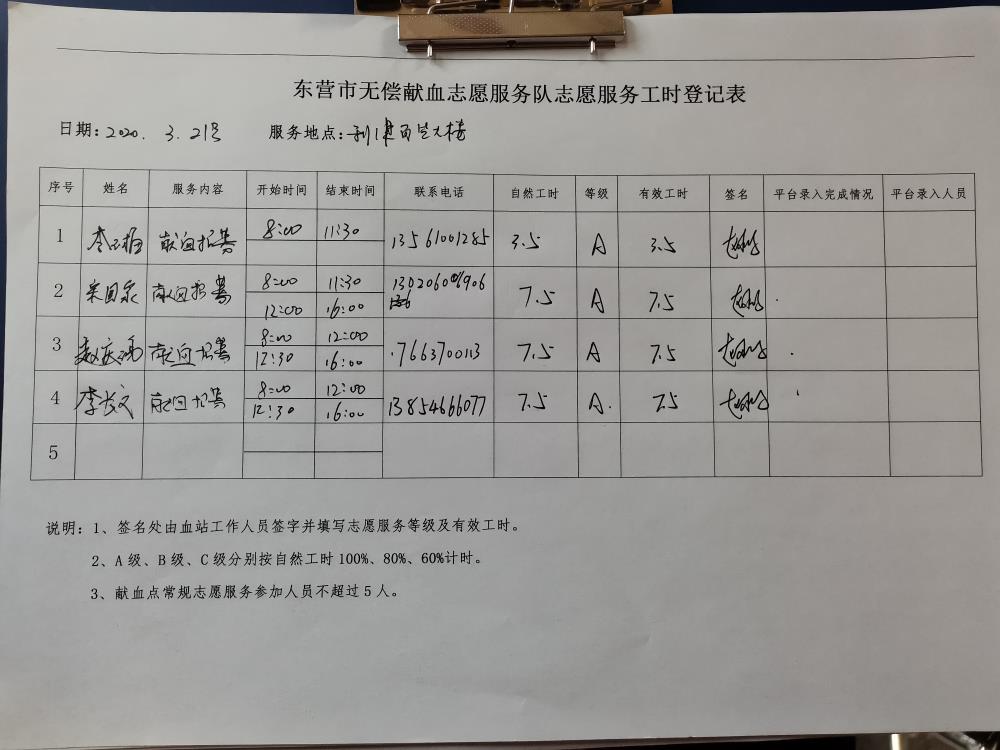 东营市无偿献血志愿服务队志愿服务工时登记表
日期:2020. 3. 21号 服务地点:利津百货大楼
序号 姓名 服务内容 开始时间 结束时间 联系电话 自然工时 等级 有效工时 签名 平台录入完成情况 平台录入人员
1 献血招募 8:00 11:30 13561001285 3.5 A 3.5
2 献血招募 8:00 11:30 7.5 A 7.5
12:00 16:00
3 献血招募 8:00 12:00 17663700113 7.5 A 7.5
12:30 16:00
4 李长文 献血招募 8:00 12:00 13854666077 7.5 A. 7.5
12:30 16:00
5
说明:1、签名处由血站工作人员签字并填写志愿服务等级及有效工时。
2、A级、B级、C级分别按自然工时100%、80%、60%计时。
3、献血点常规志愿服务参加人员不超过5人。